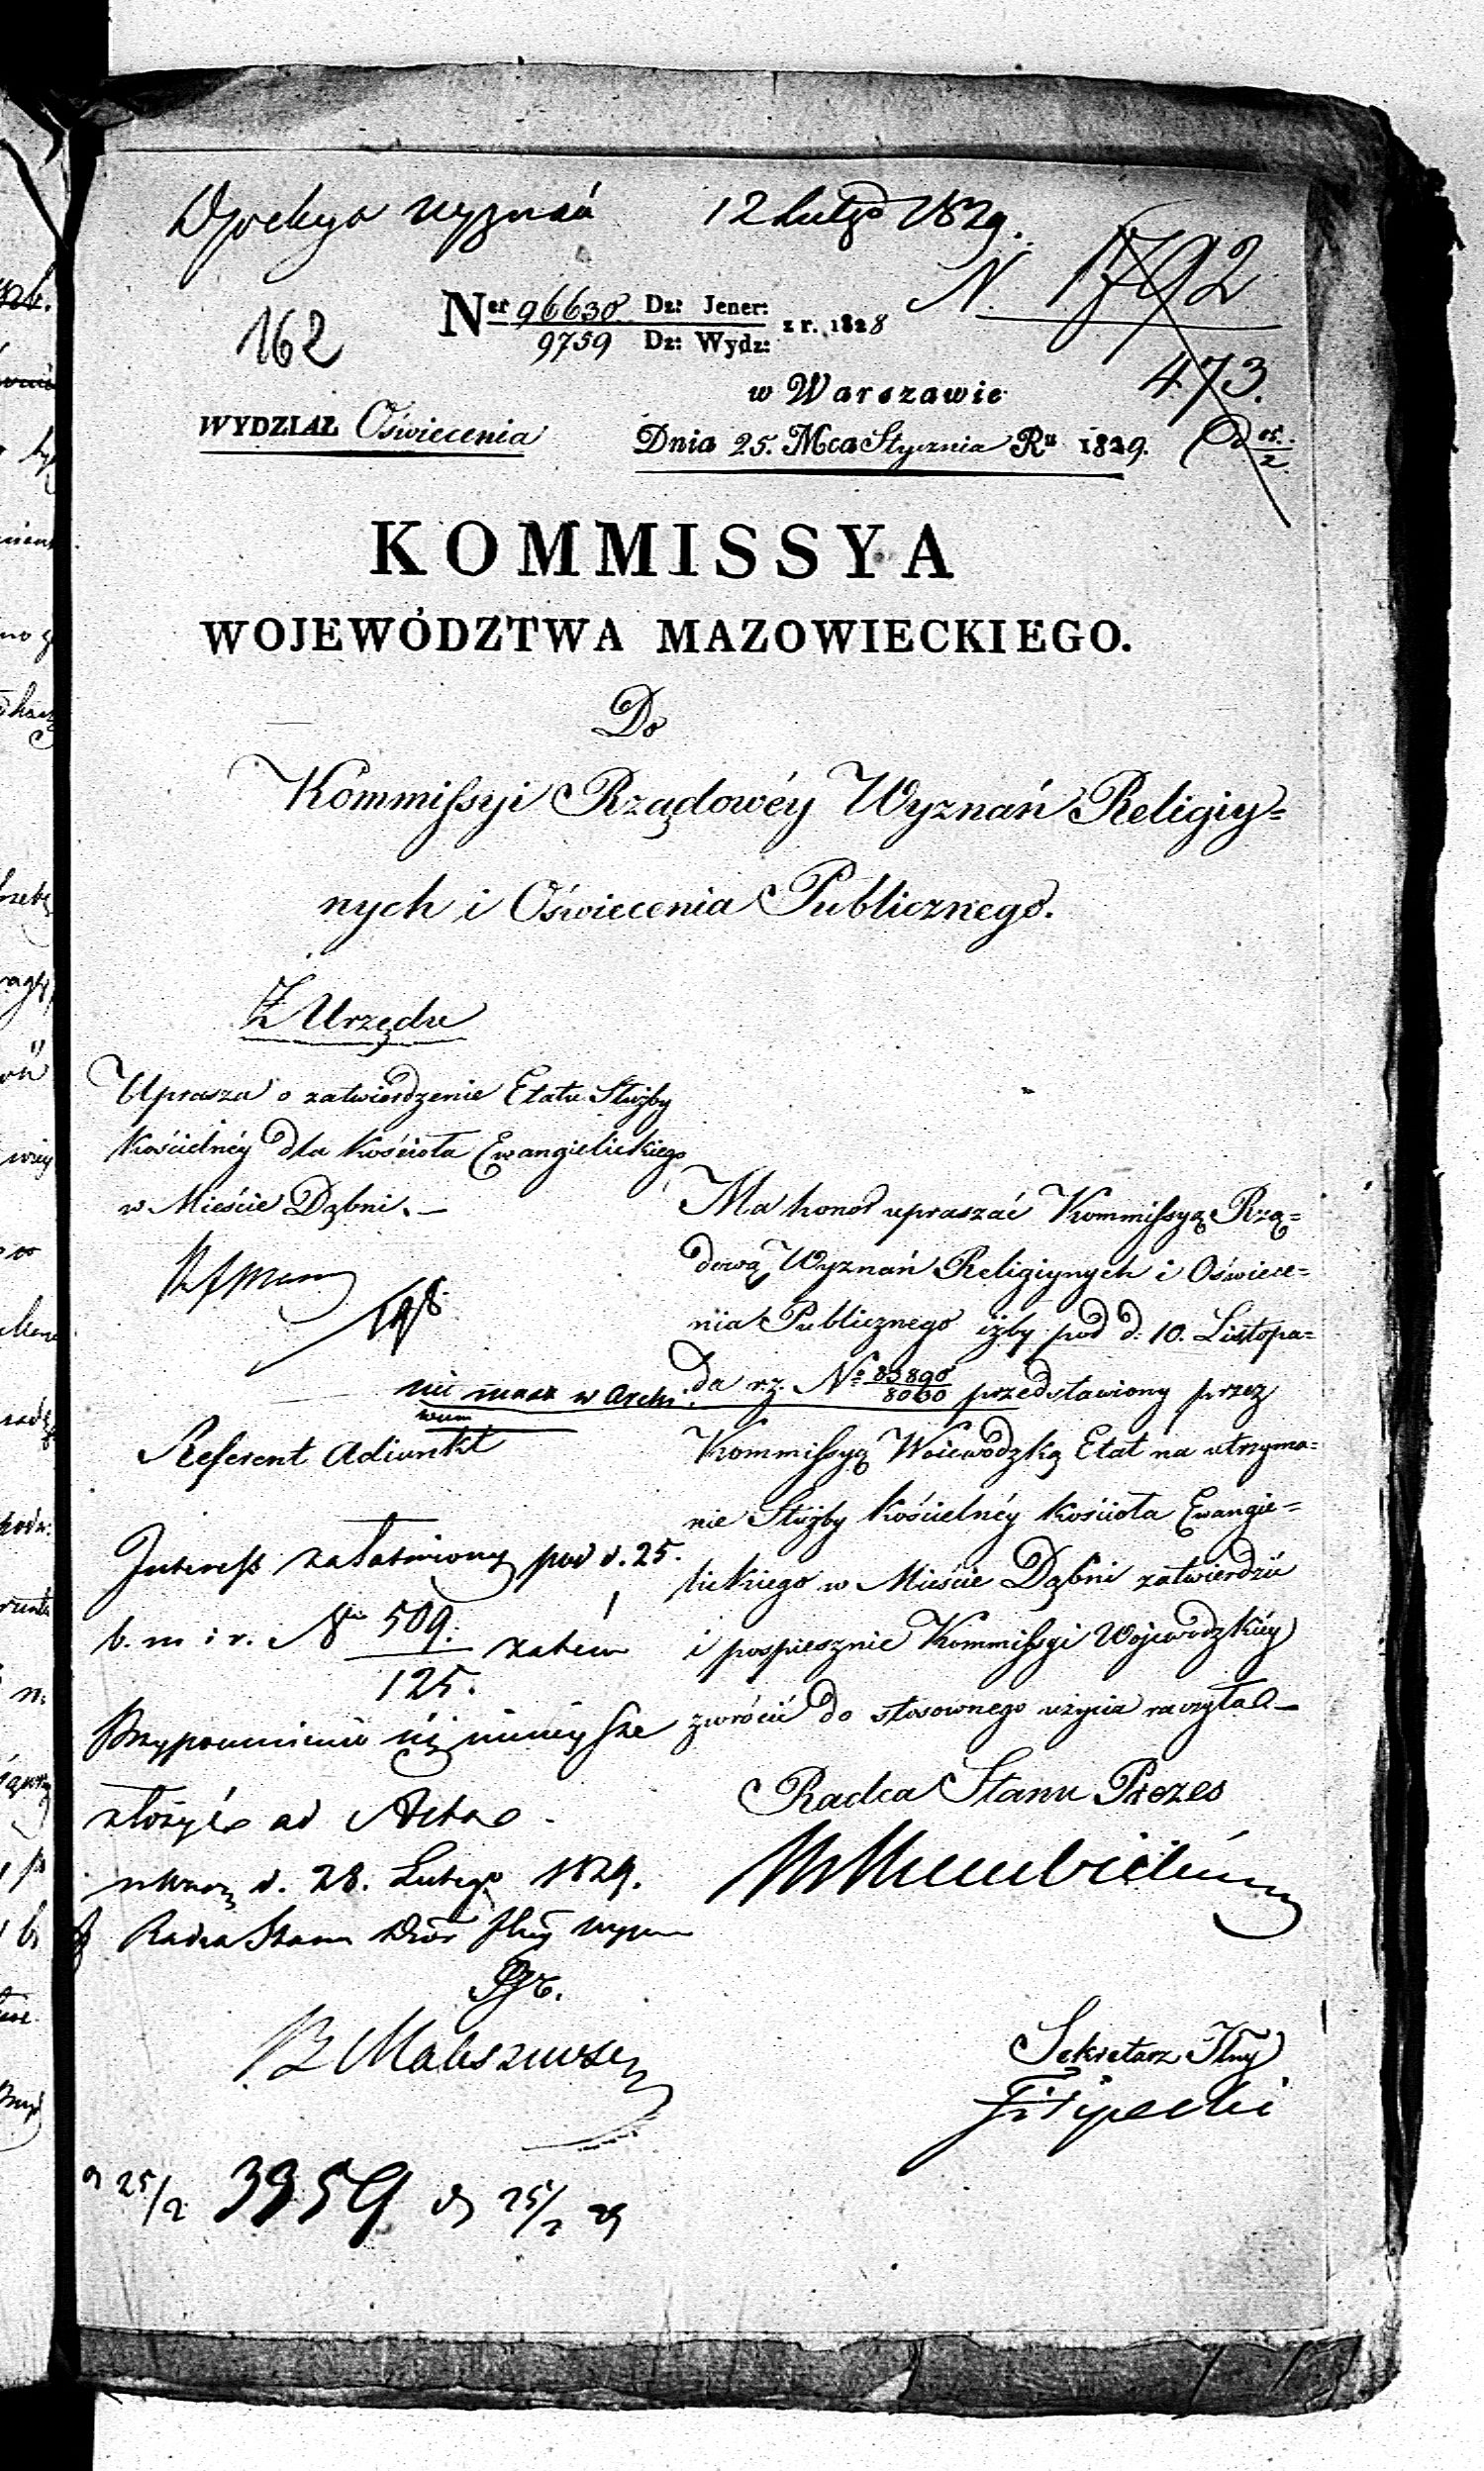 Dyrekcya wyznań 12 Lutego 1829.
N. 1792
473.
162
Ner 96630 Dz: Jener:
9759 Dz: Wydz:
z r. 1828
w Warszawie
WYDZIAŁ Oświecenia
Dnia 25. Mca Stycznia Ru 1829.
KOMMISSYA
WOJEWÓDZTWA MAZOWIECKIEGO.
Do
Kommissyi Rządowéy Wyznań Religiy=
nych i Oświecenia Publicznego.
Z Urzędu
Uprasza o zatwierdzenie Etatu Służby
Kościelnéy dla Kościoła Ewangielickiego
w Mieście Dąbni. —
nie masz w Archi
wum
Referent Adiunkt
Interess załatwiony pod d. 25.
b. m i r. No 509.
125.
zatém
Przypomnienie się ninieysze
złożyć ad Acta
d. 28. Lutego 1829.
Radca Stanu
Ma honor upraszać Kommissyą Rzą=
dową Wyznań Religiynych i Oświece=
nia Publicznego iżby pod d: 10. Listopa=
da r. z. No 83890
8060 przedstawiony przez
Kommissyą Woiewodzką Etat na utrzyma=
nie Służby Kościelnéy Kościoła Ewangie=
lickiego w Mieście Dąbni zatwierdzić
i pospiesznie Kommissyi Wojewodzkiéy
zwrócić do stosownego użycia raczyła. —
Radca Stanu Prezes
Sekretarz Jlny
Filipecki
3959